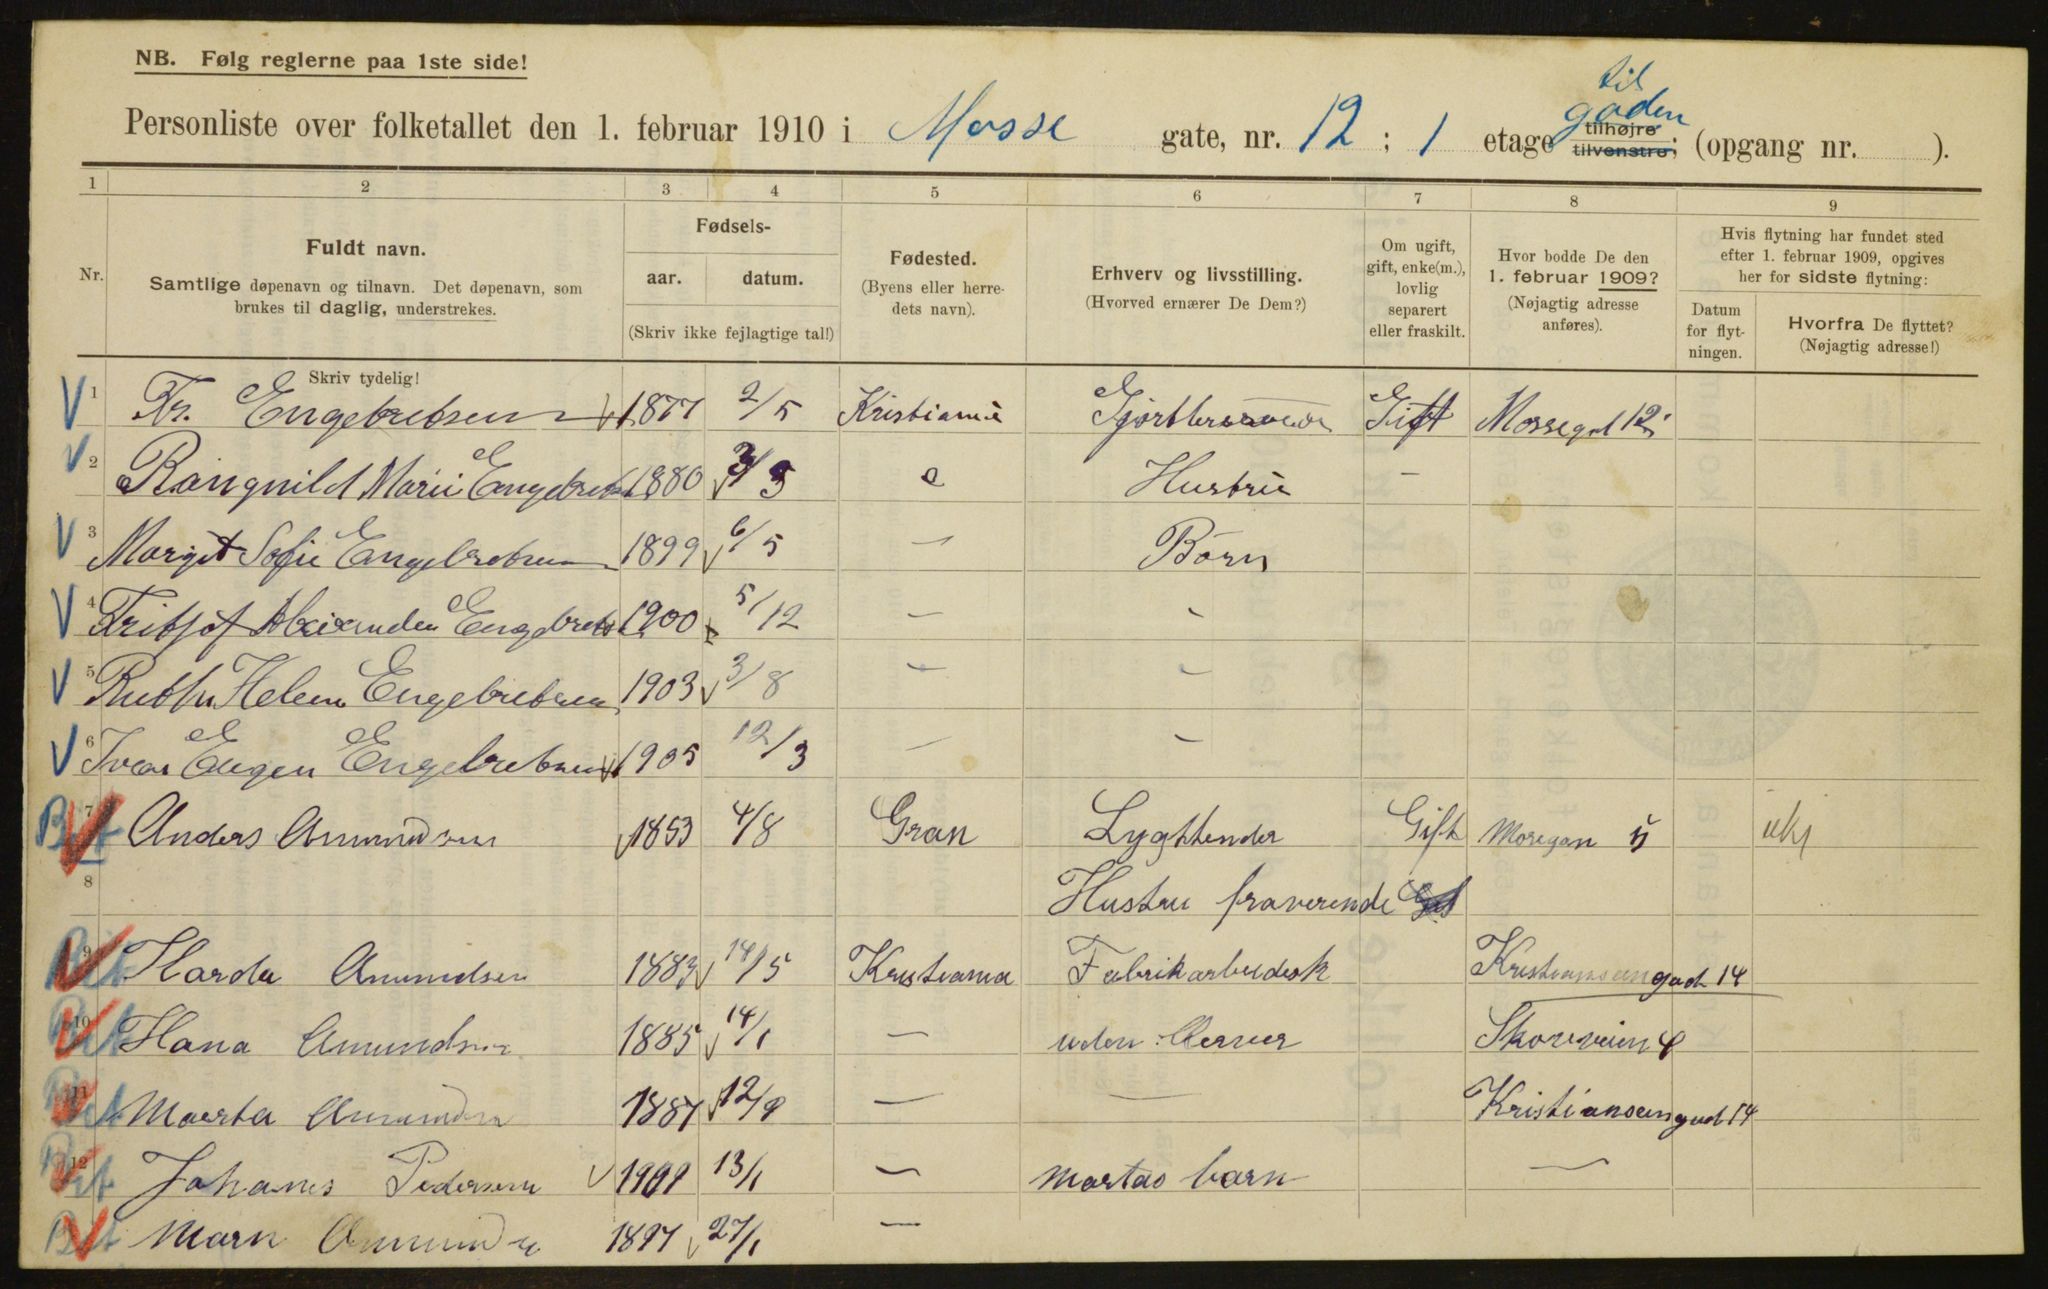 NB. Følg reglerne paa 1ste side!
til
gaden
Personliste over folketallet den 1. februar 1910 i Mosse gate, nr. 12 ; 1 etage tilhøjre tilvenstre; (opgang nr. ).
1 2 3 4 5 6 7 8 9
Nr.
Fuldt navn.
Samtlige døpenavn og tilnavn. Det døpenavn, som
brukes til daglig, understrekes.
Skriv tydelig!
Fødsels-
aar. datum.
(Skriv ikke fejlagtige tal!)
Fødested.
(Byens eller herre-
dets navn).
Erhverv og livsstilling.
(Hvorved ernærer De Dem?)
Om ugift,
gift, enke(m.),
lovlig
separert
eller fraskilt.
Hvor bodde De den
1. februar 1909?
(Nøjagtig adresse
anføres).
Hvis flytning har fundet sted
efter 1. februar 1909, opgives
her for sidste flytning:
Datum
for flyt-
ningen.
Hvorfra De flyttet?
(Nøjagtig adresse!)
V 1 Fr. Engebretsen 1877 2/5 Kristiania Gift Mossegd 12
V 2 Rangnild Marie Engebrets 1880 3/3 Hustru
V 3 Margit Sofie Engebretsen 1899 6/5 — Børn
V 4 Fritjof Alexander Engebrets 1900 5/12 — -
V 5 Ruth Helene Engebretsen 1903 3/8 — -
V 6 Ivar Eugen Engebretsen 1905 12/3 — -
Bet 7 Anders Amundsen 1853 4/8 Gran Lygttender Gift
8 Hustru fraverende
Bet 9 Harda Amundsen 1883 14/5 Kristiania Fabrikarbeidesk Kristiansangade 14
Bet 10 Hana Amundsen 1885 14/1 — uden
Bet 11 Maerta Amundsen 1887 — — Kristiansangad 14
Bet 12 Johanes Pedersen 1909 13/1 — Martas barn —
Bet Marn Amundsen 1897 27/1 —